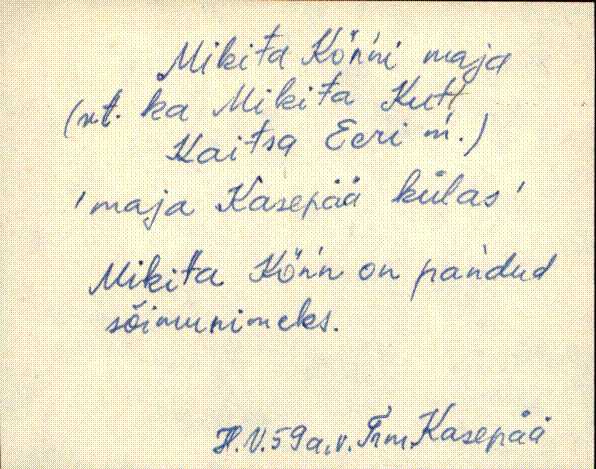 Mikita Kön'ni maja
(vt. ka Mikita Kutt
Kaitsa Eeri m.)
'maja Kasepää külas'
Mikita Kön'n on pan'dud
sõimunimeks.
59a. Trm, Kasepää